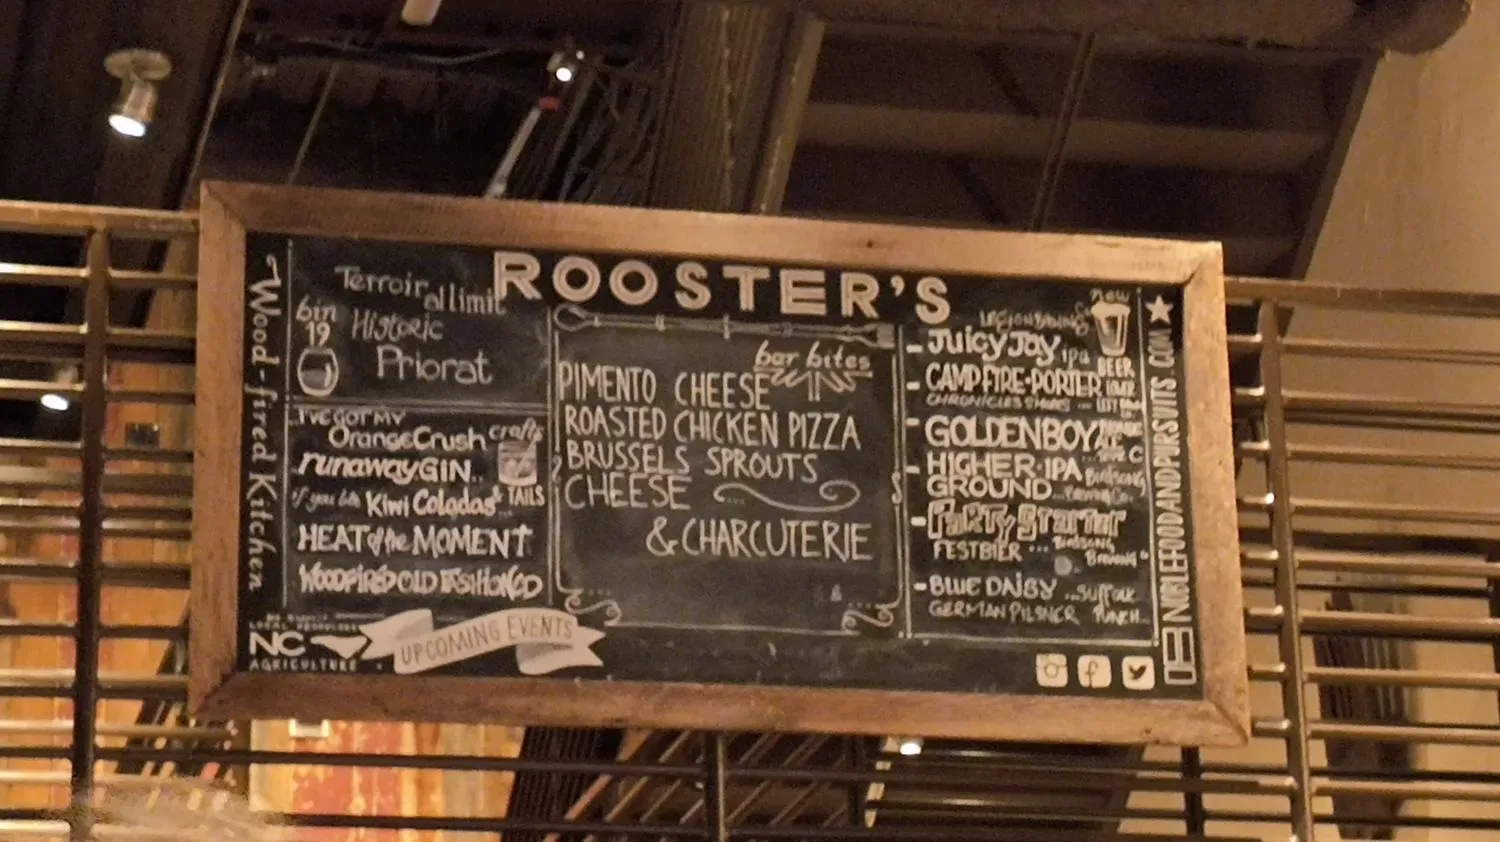 ROOSTER'S
Wood-fired Kitchen
bin
19
Terroir
al limit
Historic
Priorat
I'VE GOT MY
Orange Crush
crafts
runaway GIN..
Kiwi Coladas
& TAILS
HEAT of the MOMENT
WOODFIRED OLD FASHIONED
LOCAL
NC
AGRICULTURE
UPCOMING EVENTS
bar bites
PIMENTO CHEESE
ROASTED CHICKEN PIZZA
BRUSSELS SPROUTS
CHEESE
& CHARCUTERIE
new
BEER
- JUICY JAY ipa
- CAMPFIRE·PORTER
CHRONICLES
- GOLDEN BOY
- HIGHER·IPA Birdsong
GROUND...Brewing Co.
- PARTY STARTER
FESTBIER ... Birdsong
Brewing
- BLUE DAISY ...Suffolk
GERMAN PILSNER PUNCH...
NOBLEFOODANDPURSUITS.COM